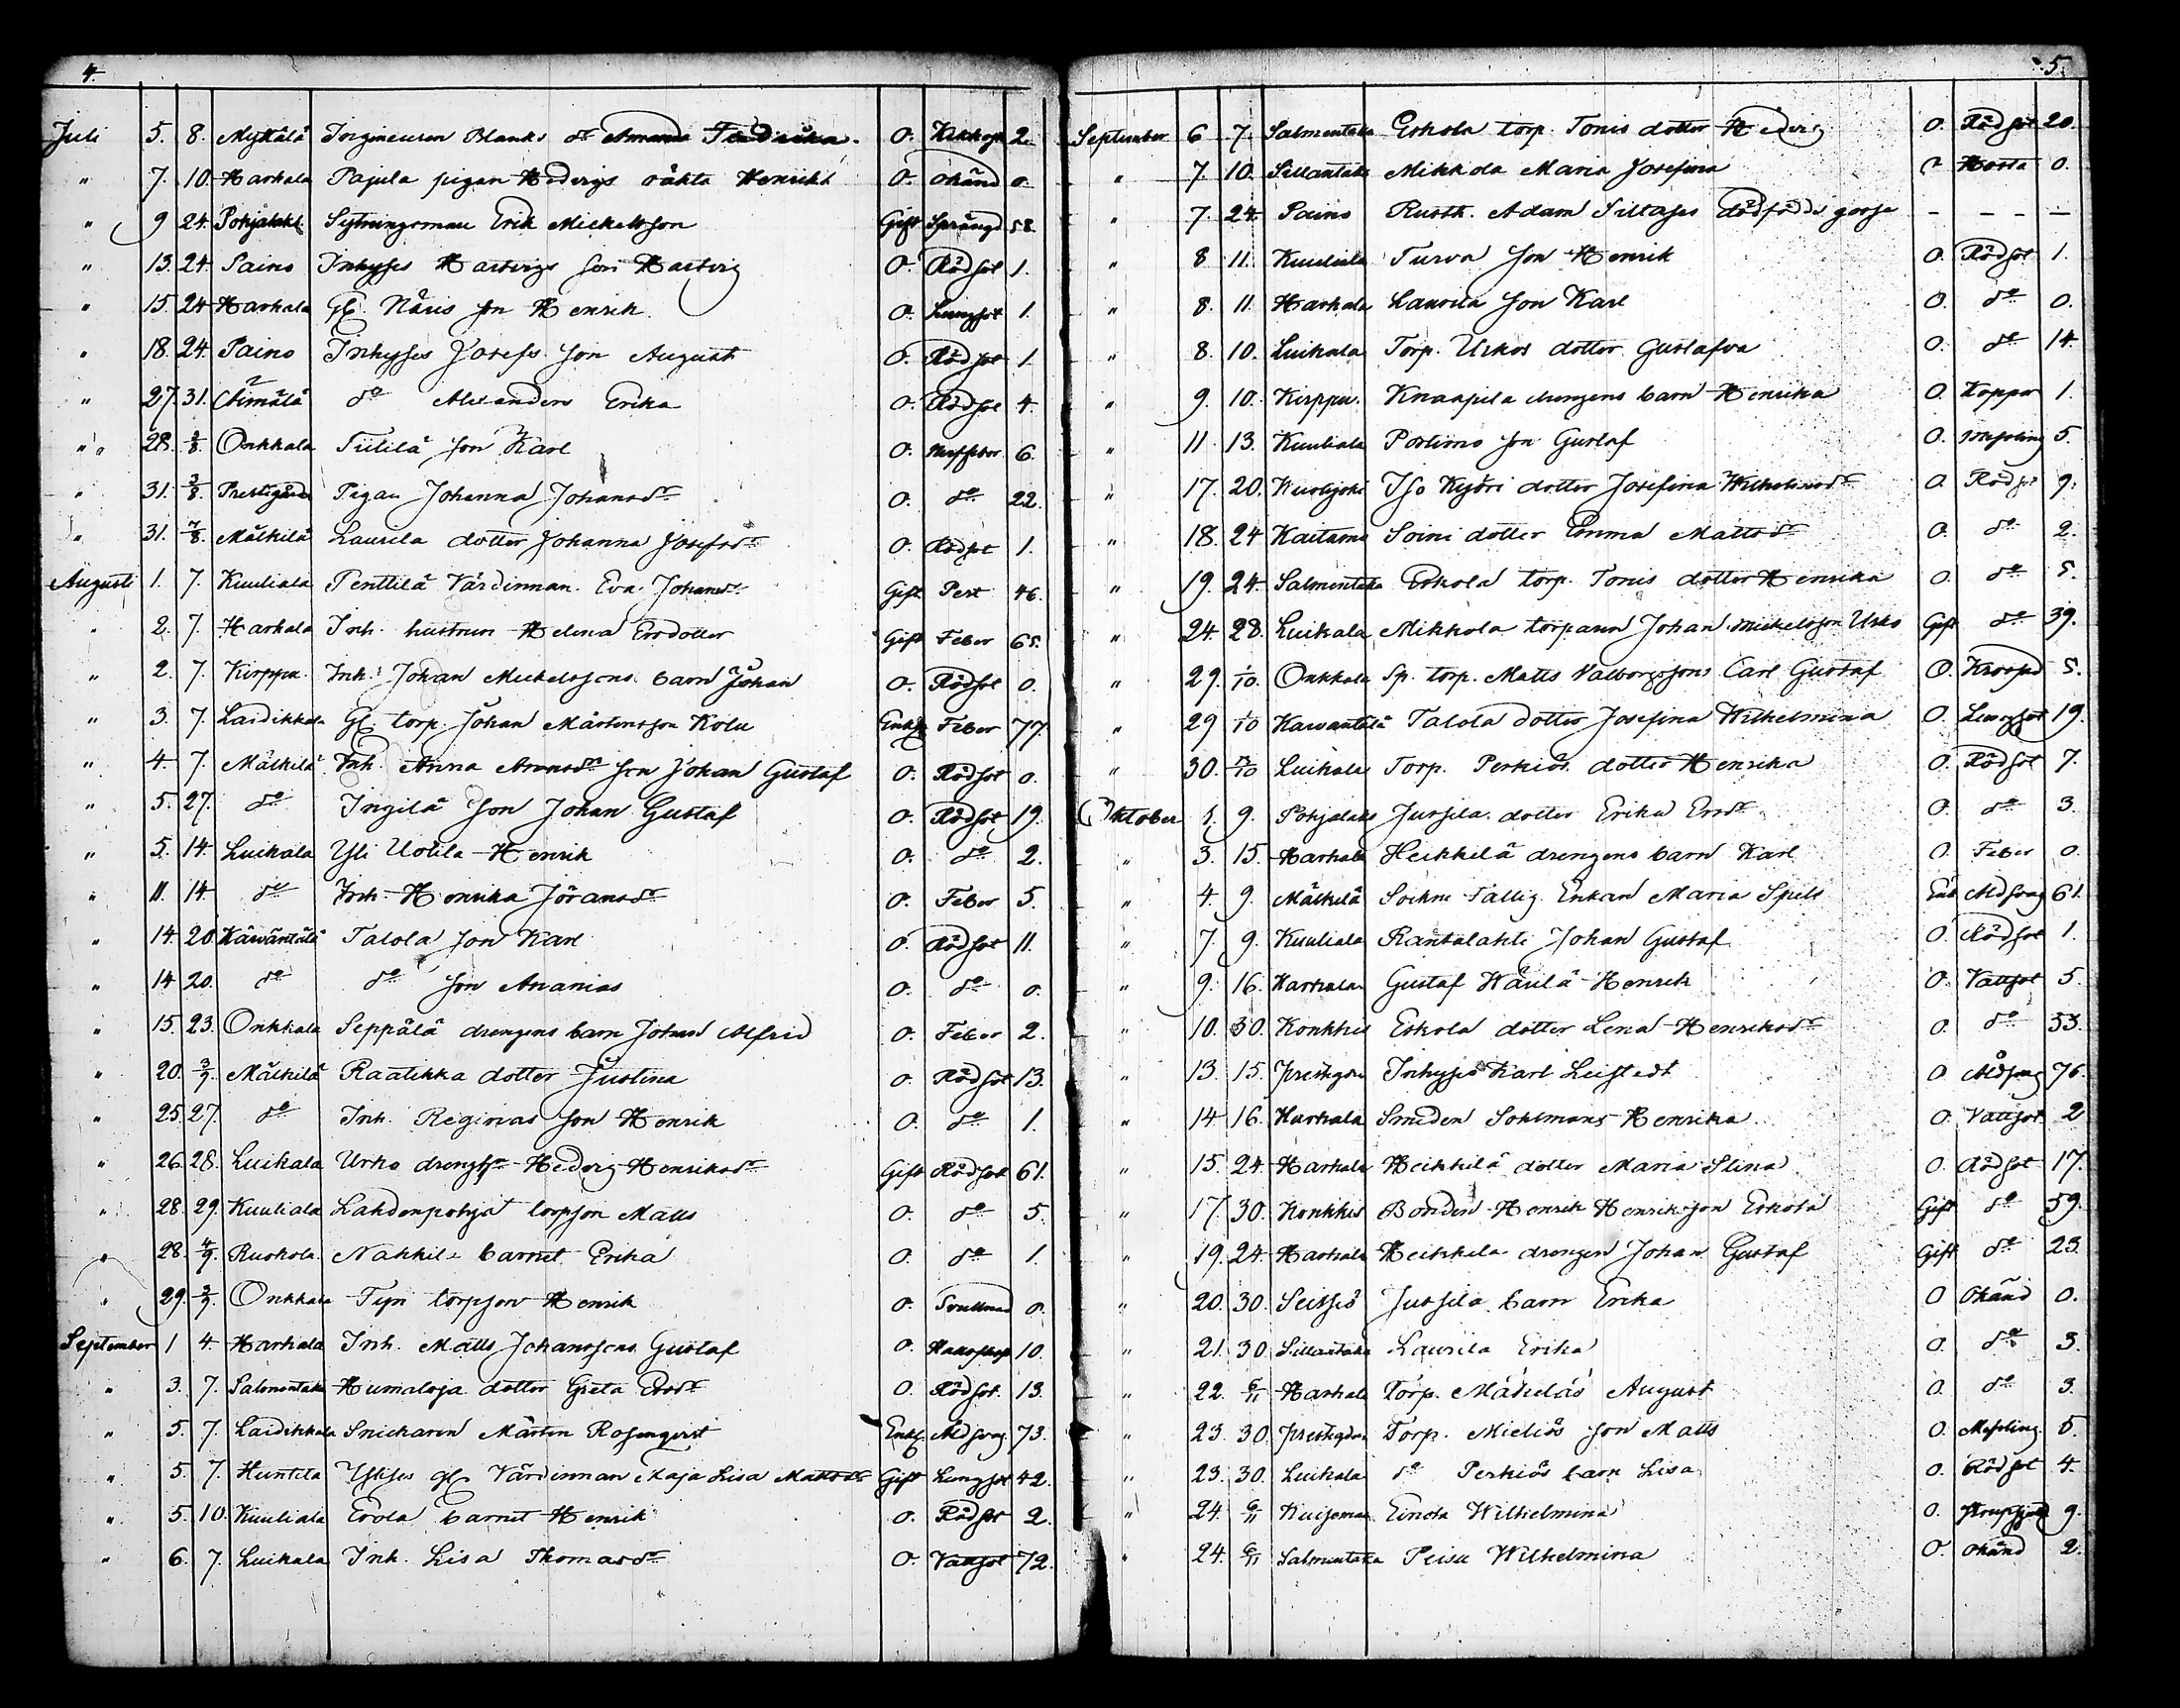 4.
Juli 5. 8. Myttälä Ingineuren Blanks dr Amanda Fredrika. O. Kikhosta 2.
" 7. 10. Harhala Pajula pigan Hedvigs oäkta Henrikt O. okänd 0.
" 9 24. Pohjalaht. Sytningsman Erik Mickelsson Gift 58.
" 13. 24. Saino Inhyses Hartvigs son Hartvig O. Rödsot 1.
" 15. 24 Harhala Gl. Näris son Henrik O. Lungsot 1.
" 18. 24. Saino Inhyses Josefs son August O. Rödsot 1.
" 27. 31. Äimälä do Alexanders Erika O. Rödsot 4.
" 28. 2/8. Onkkala Tiililä son Karl O. 6.
" 31. 3/8. Prestgården Pigan Johanna Johansdr O. do 22.
" 31. 7/8. Mälkilä Laurila dotter Johanna Josefsdr O. Rödsot 1.
Augusti 1. 7. Kuuliala Penttilä Värdinnan Eva Johansdr Gift Pest 46.
" 2. 7. Harhala Inh. hustrun Helena Ersdotter Gift Feber 65.
" 2. 7. Kirppu. Inh. Johan Mickelssons barn Johan O. Rödsot 0.
" 3. 7. Laidikkala Gl. torp. Johan Mårtensson Kolu Enkl. Feber 77.
" 4. 7. Mälkilä Inh. Anna Aronsdr son Johan Gustaf O. Rödsot 0.
" 5. 27. do Ingilä son Johan Gustaf O. Rödsot 19.
" 5. 14. Luikala Yli Uotila Henrik O. do 2.
" 11. 14. do Inh. Henrika Jöransdr O. Feber 5.
" 14. 20. Käväntälä Talola son Karl O. Rödsot 11.
" 14 20. do do son Ananias O. do 0.
" 15. 23. Onkkala Seppälä drengens barn Johan Alfrid O. Feber 2.
" 20. 3/9. Mälkilä Raatikka dotter Justina O. Rödsot 13.
" 25. 27. do Inh. Reginas son Henrik O. do 1.
" 26. 28. Luikala Urko Hedvig Henriksdr Gift Rödsot 61.
" 28. 29. Kuuliala Lahdenpohja torpson Matts O. do 5.
" 28. 4/9. Ruokola Nakkila barnet Erika O. do 1.
" 29. 3/9. Onkkala torpson Henrik O. Svullnad 0.
September 1 4. Harhala Inh. Matts Johanssons Gustaf O. 10.
" 3. 7. Salmentaka Humaloja dotter Greta Ersdr O. Rödsot. 13.
" 5. 7. Laidikkala Snickaren Mårten Rosenqvist Enkl. Åldsvag. 73.
" 5. 7. Huntila gl. Värdinnan Kaja Lisa Mattsdr Gift Lungsot 42.
" 5. 10. Kuuliala Erola barnet Henrik O. Rödsot 2.
" 6. 7. Luikala Inh. Lisa Thomasdr O. Vattsot 72.
5.
September 6 7. Salmentaka Eskola torp. Tonis dotter Hedvig O. Rödsot 20.
" 7. 10. Sillantaka Mikkola Maria Josefina O Hosta 0.
" 7. 24. Saino Rusth. Adam Siltases dödfödde gosse – – – –
" 8 11. Kuuliala Turva son Henrik O. Rödsot 1.
" 8. 11. Harhala Laurila son Karl O. do 0.
" 8. 10. Luikala Torp. Urkos dotter Gustafva O. do 14.
" 9. 10. Kirppu. Knaapila drengens barn Henrika O. Koppor 1.
" 11. 13. Kuuliala Portimo son Gustaf O. 5.
" 17. 20. Iso Kyöri dotter Josefina Wilhelmsdr O. Rödsot 9.
" 18. 24 Kaitamo Soini dotter Emma Mattsdr O. do 2.
" 19. 24. Salmentaka Eskola torp. Tonis dotter Henrika O. do 5.
" 24 28. Luikala Mikkola torparen Johan Mickelsson Urko Gift do 39.
" 29. 1/10. Onkkala Sp. torp. Matts Valborgssons Carl Gustaf O. 5.
" 29 1/10 Kawantälä Talola dotter Josefina Wilhelmina O. Lungsot 19.
" 30. Luikala Torp. Perkiös dotter Henrika O. Rödsot 7.
Oktober 1. 9. Pohjalaks Jussila dotter Erika Ersdr O. do 3.
" 3. 15. Harhala Heikkilä drengens barn Karl O. Feber 0.
" 4. 9. Mälkilä Sockne Fattig Enkan Maria Spets Enk. Åldsvag 61.
" 7. 9. Kuuliala Rantalahti Johan Gustaf O. Rödsot 1.
" 9. 16. Harhala Gustaf Wäulä Henrik O. Vattsot 5.
" 10. 30. Konkkis Eskola dotter Lena Henriksdr O. do 33.
" 13. 15. Prestgdn Inhyses Karl Leistedt O Åldsvag 76.
" 14 16. Harhala Smeden Sohlmans Henrika O. Vattsot 2
" 15. 24 Harhala Heikkilä dotter Maria Stina O. Rödsot 17.
" 17. 30. Konkkis Bonden Henrik Henriksson Eskola Gift do 59.
" 19. 24. Harhala Heikkilä drengen Johan Gustaf Gift do 23.
" 20. 30. Seitsiö Jussila barn Erika O Okänd 0.
" 21. 30. Sillantaka Laurila Erika O. do 3.
" 22. 6/11 Harhala Torp. Mäkeläs August O. do 3.
" 23. 30. Prestgdn Torp. Mieliäs son Matts O. Messling 5.
" 23. 30. Luikala do Perkiös barn Lisa O. Rödsot 4.
" 24. 6/11 Kuisema Einola Wilhelmina O. 9.
" 24. 6/11 Salmentaka Peisu Wilhelmina O. Okänd 2.